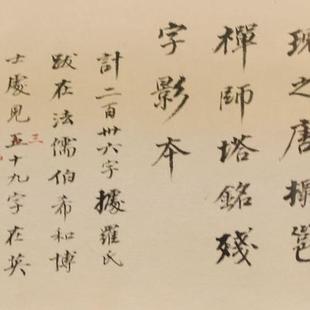 現之唐搨邕
禪師塔銘殘
字影本
計二百卅六字據羅氏
跋在法儒伯希和博
士處見五十九字在英
三